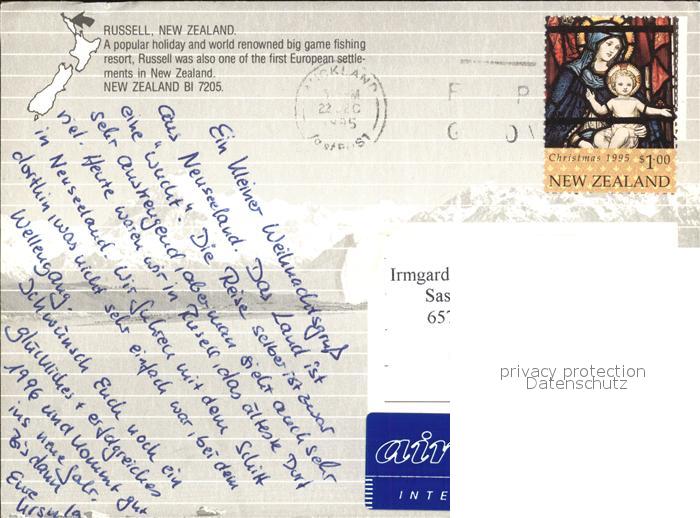 RUSSELL, NEW ZEALAND.
A popular holiday and world renowned big game fishing
resort, Russell was also one of the first European settle-
ments in New Zealand.
NEW ZEALAND BI 7205.
AUCKLAND
22 DEC
1995
Christmas 1995 $1.00
NEW ZEALAND
Ein kleiner Weihnachtsgruß
aus Neuseeland. Das Land ist
eine "Wucht". Die Reise selber ist zwar
sehr anstrengend, aber man sieht auch sehr
viel. Heute waren wir in Rusell, das älteste Dorf
in Neuseeland. Wir fuhren mit dem Schiff
dorthin, was nicht sehr einfach war, bei dem
Wellengang.
Ich wünsch Euch noch ein
glückliches + erfolgreiches
1996 und kommt gut
ins neue Jahr.
Bis dann
Eure
Ursula
Irmgard
Sas
657
privacy protection
Datenschutz
air
INTE